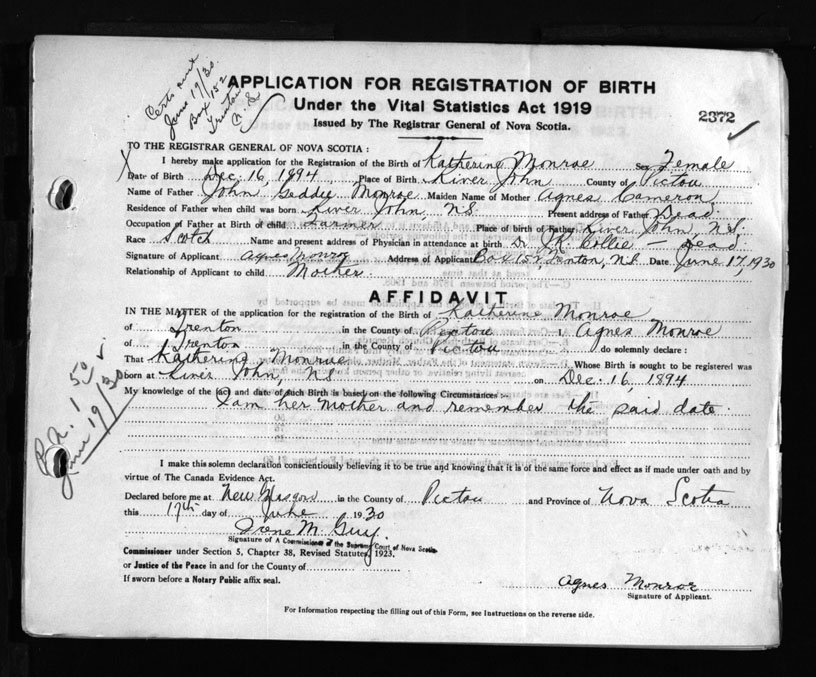 Certs sent
June 19/30.
Box 152
Trenton
N.S.
APPLICATION FOR REGISTRATION OF BIRTH
Under the Vital Statistics Act 1919
Issued by The Registrar General of Nova Scotia.
2372
TO THE REGISTRAR GENERAL OF NOVA SCOTIA :
I hereby make application for the Registration of the Birth of Katherine Monroe Sex Female
Date of Birth Dec. 16, 1894 Place of Birth River John County of Pictou
Name of Father John Geddie Monroe Maiden Name of Mother Agnes Cameron
Residence of Father when child was born River John, N.S. Present address of Father Dead
Occupation of Father at Birth of child Farmer Place of birth of Father River John, N.S.
Race Scotch Name and present address of Physician in attendance at birth Dr. Collie — Dead
Signature of Applicant Agnes Monroe Address of Applicant Box 152, Trenton, N.S. Date June 17, 1930
Relationship of Applicant to child Mother
AFFIDAVIT
IN THE MATTER of the application for the registration of the Birth of Katherine Monroe
of Trenton in the County of Pictou I, Agnes Monroe
of Trenton in the County of Pictou do solemnly declare :
That Katherine Monroe Whose Birth is sought to be registered was
born at River John, N.S. on Dec. 16, 1894
My knowledge of the fact and date of such Birth is based on the following Circumstances :-
I am her mother and remember the said date.
1 50
June 19/30
I make this solemn declaration conscientiously believing it to be true and knowing that it is of the same force and effect as if made under oath and by
virtue of The Canada Evidence Act.
Declared before me at New Glasgow in the County of Pictou and Province of Nova Scotia
this 17th day of June 1930
Irene M. Guy.
Signature of A Commissioner of the Supreme Court of Nova Scotia
Commissioner under Section 5, Chapter 38, Revised Statutes, 1923.
or Justice of the Peace in and for the County of
If sworn before a Notary Public affix seal.
Agnes Monroe
Signature of Applicant.
For Information respecting the filling out of this Form, see Instructions on the reverse side.